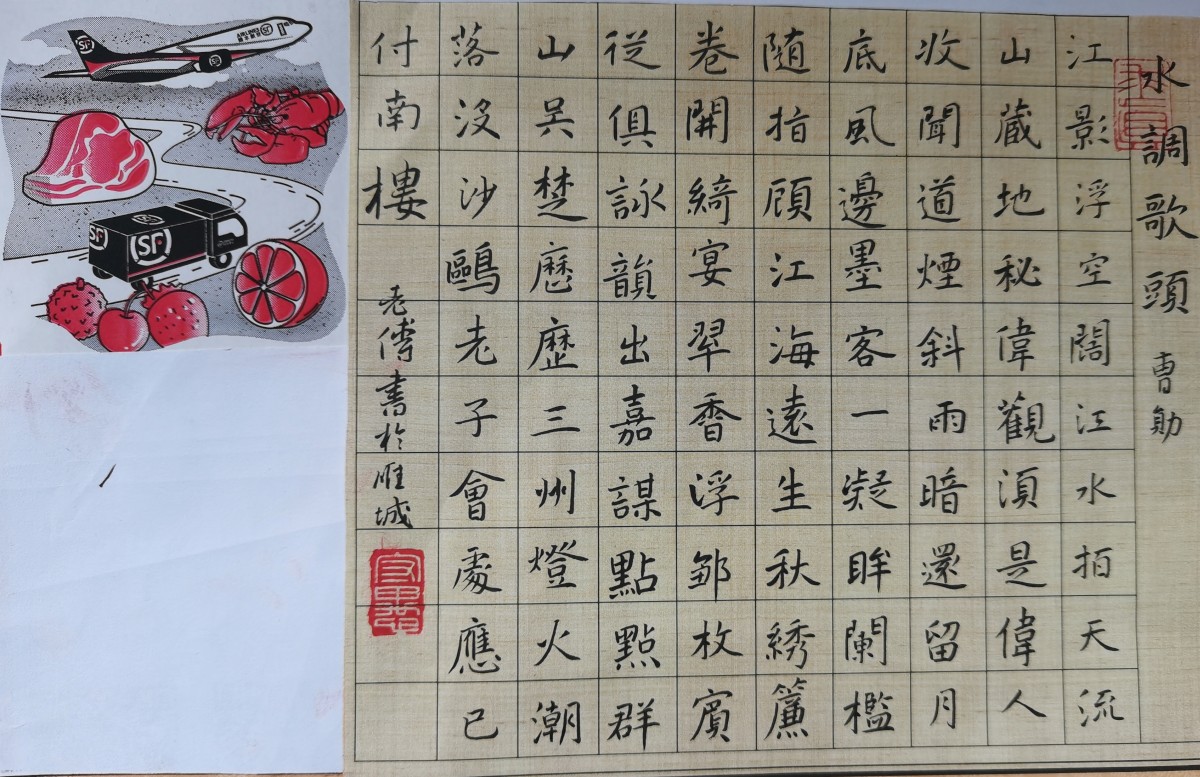 水調歌頭 曹勛
江影浮空闊江水拍天流
山藏地秘偉觀須是偉人
收聞道煙斜雨暗還留月
底風邊墨客一凝眸闌檻
随指顧江海遠生秋綉簾
卷開綺宴翠香浮鄒枚賓
從俱詠韻出嘉謀點點群
山吳楚歷歷三州燈火潮
落沒沙鷗老子會處應已
付南樓
老傅書於雁城
SF
SF
SF